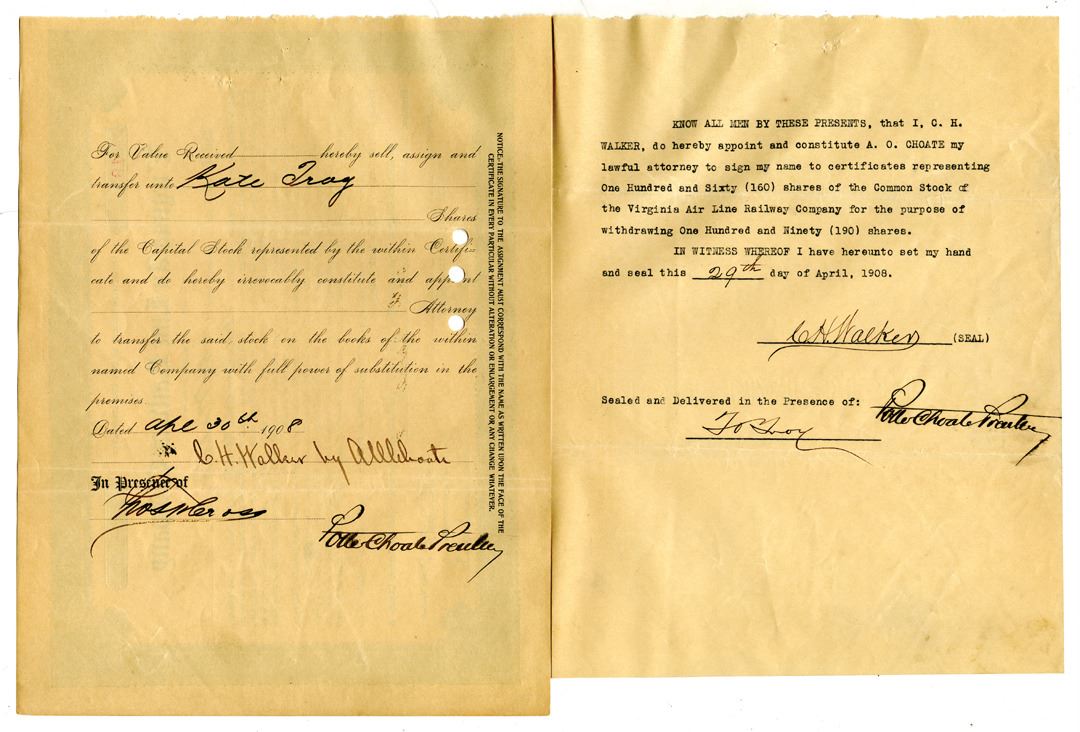 For Value Received hereby sell, assign and
transfer unto Kate Troy
Shares
of the Capital Stock represented by the within Certifi-
cate and do hereby irrevocably constitute and appoint
Attorney
to transfer the said stock on the books of the within
named Company with full power of substitution in the
premises.
Dated Apl 30th 1908
C. H. Walker by A O Choate
In Presence of
Thos W Cross
Potter Choate Prentice
NOTICE: THE SIGNATURE TO THE ASSIGNMENT MUST CORRESPOND WITH THE NAME AS WRITTEN UPON THE FACE OF THE
CERTIFICATE IN EVERY PARTICULAR WITHOUT ALTERATION OR ENLARGEMENT OR ANY CHANGE WHATEVER.
KNOW ALL MEN BY THESE PRESENTS, that I, C. H.
WALKER, do hereby appoint and constitute A. O. CHOATE my
lawful attorney to sign my name to certificates representing
One Hundred and Sixty (160) shares of the Common Stock of
the Virginia Air Line Railway Company for the purpose of
withdrawing One Hundred and Ninety (190) shares.
IN WITNESS WHEREOF I have hereunto set my hand
and seal this 29th day of April, 1908.
C. H. Walker (SEAL)
Sealed and Delivered in the Presence of:
Potter Choate Prentice
Troy